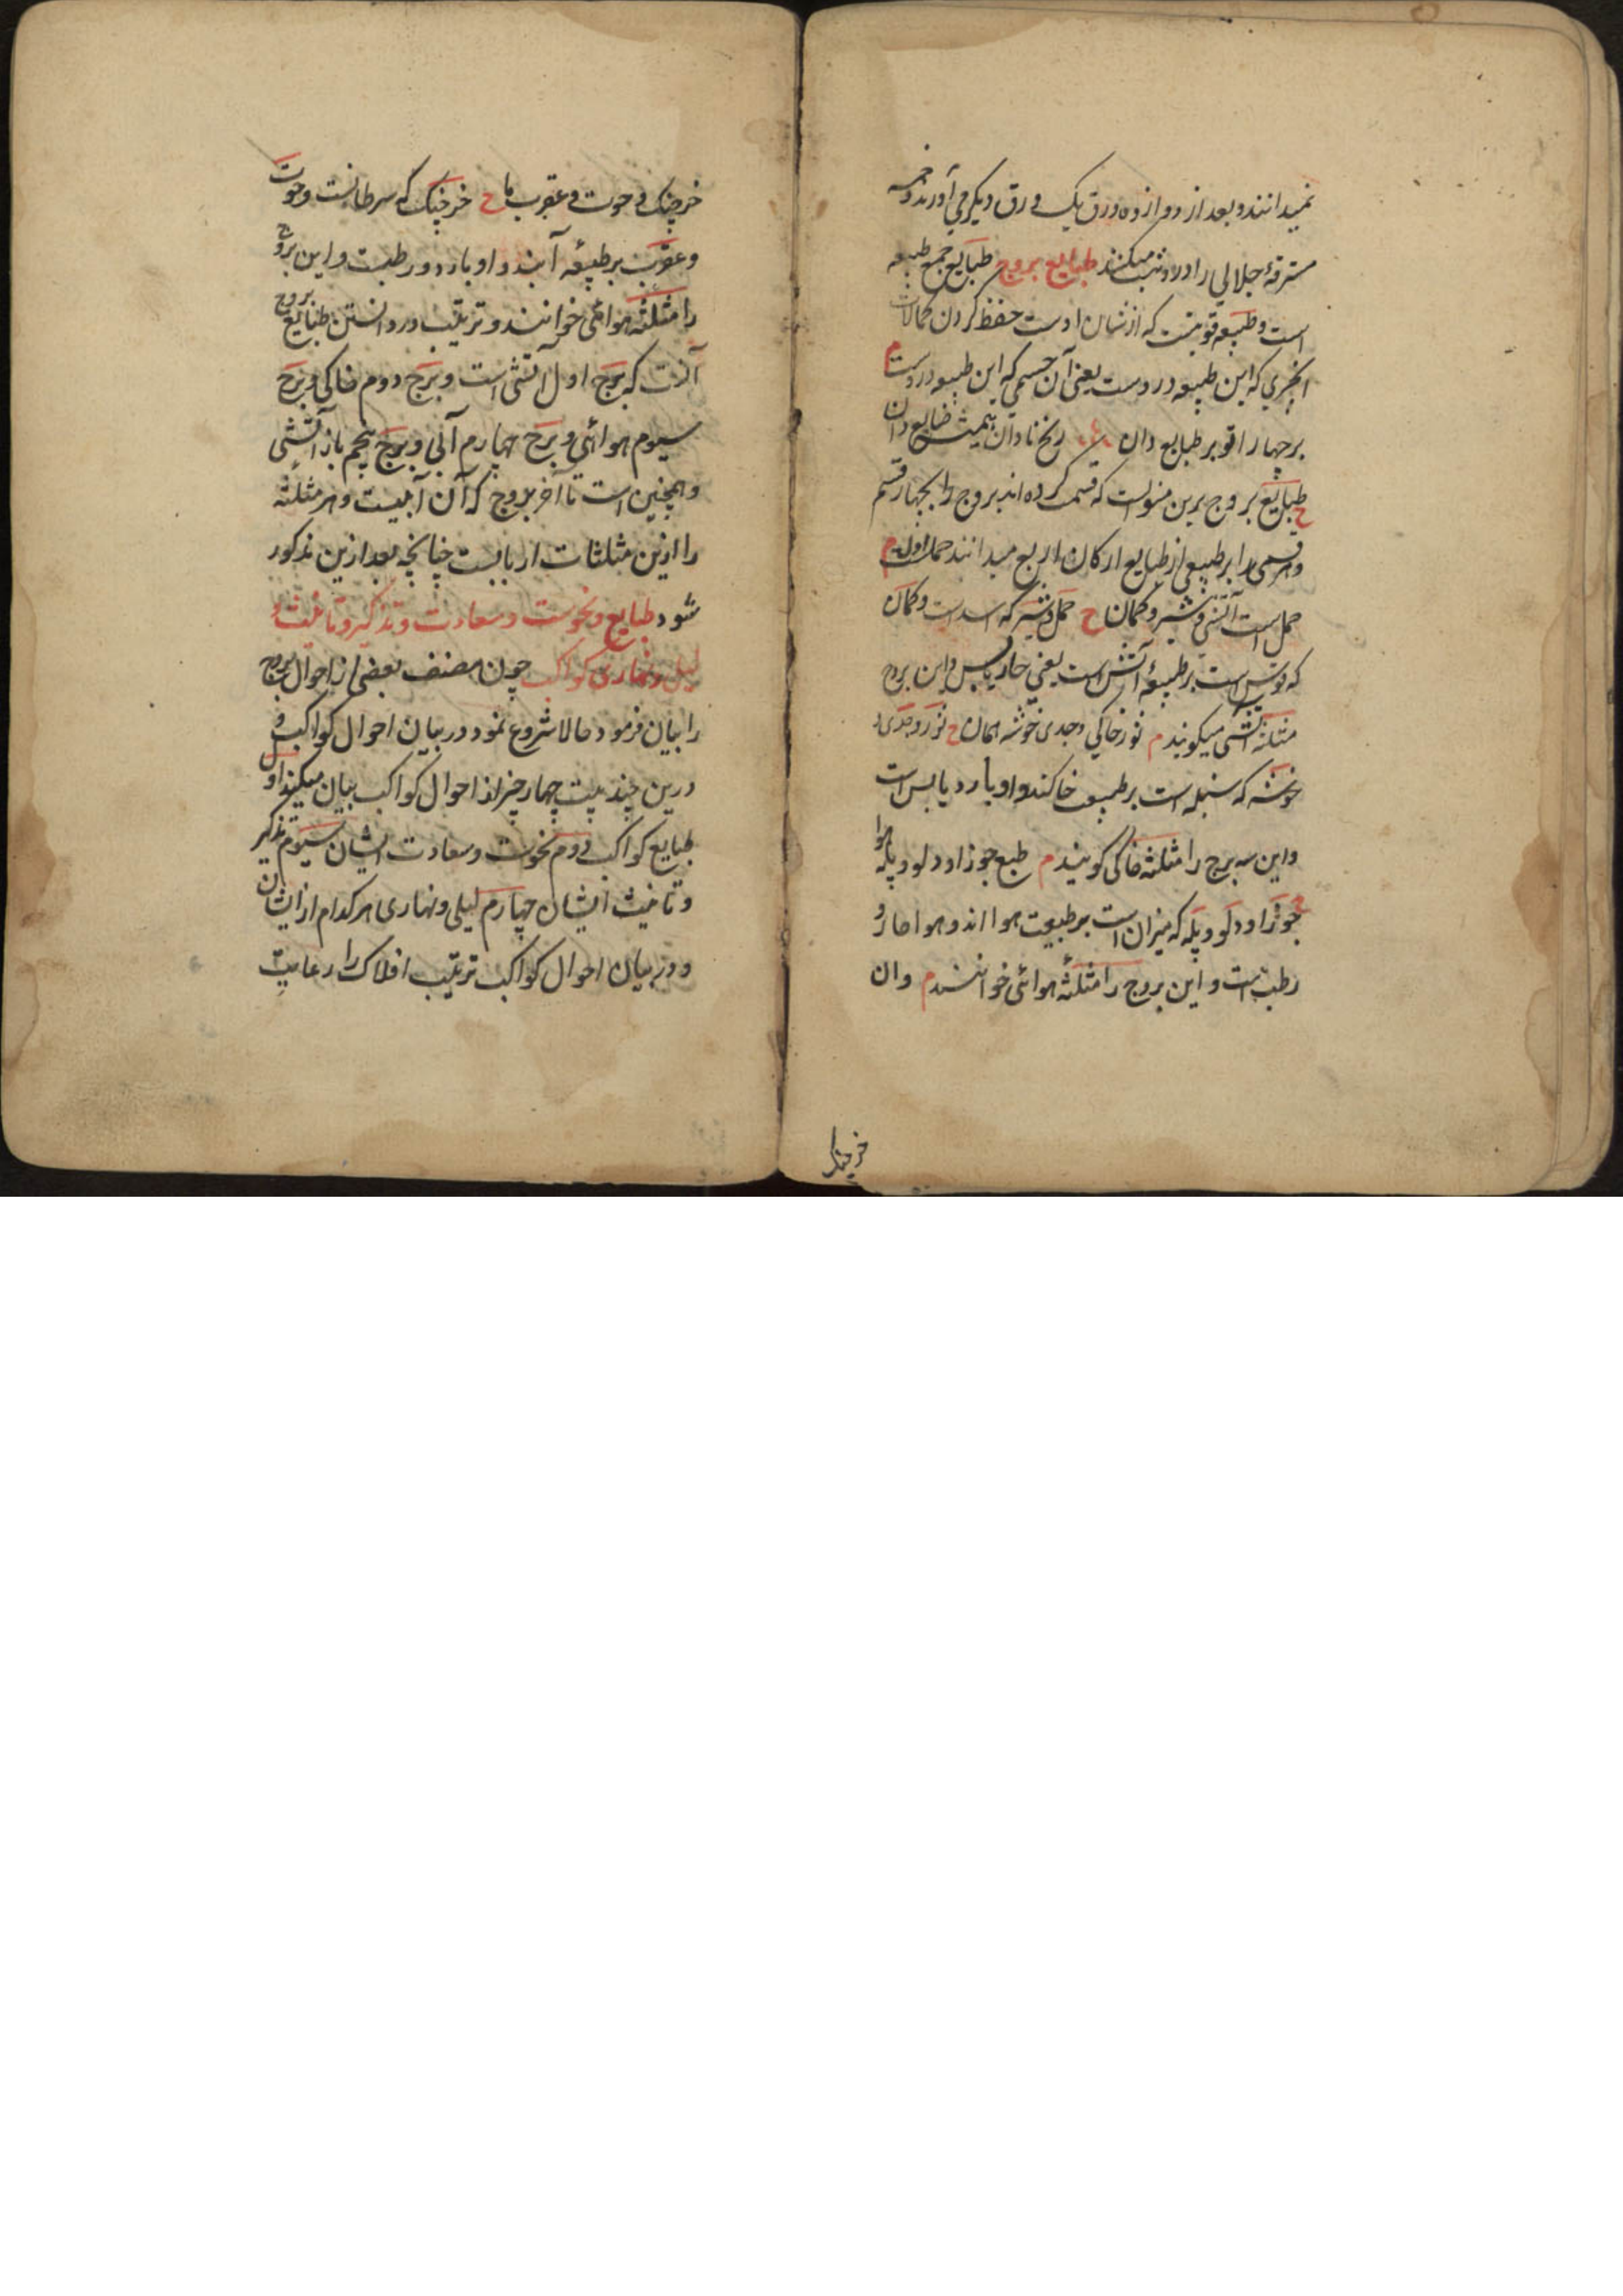 نمیدانند و بعد از دوازده ورق یک ورق دیکر می آورند و خمسه
مسترقهٔ جلالی را درو ثبت میکنند طبایع بروج طبایع جمع طبیعه
است و طبیعه قوتیست که از نشان اوست حفظ کردن کمالات
انچیزی که این طبیعه دروست یعنی آن جسمی که این طبیعه دروست م
بر چهار اقو بر طبایع دان نادان ضایع دان
ح طبایع بروج برین منوالست که قسمت کرده اند بروج را بچهار قسم
و هر قسمی را بر طبیعی از طبایع ارکان اربع میدانند حمل اول م
حمل است آتشی و شیر و کمان ح حمل و شیر که اسد است و کمان
که قوس است بر طبیعهٔ آتش است یعنی حار یابس و این بروج
مثلثه آتشی میکویند م ثور خاکی و جدی خوشه همان ح ثور و جدی و
خوشه که سنبله است بر طبیعت خاکند و او بارد یابس است
و این سه برج را مثلثه خاکی کویند م طبع جوزا و دلو و پله هوا
ح جوزا و دلو و پله که میزان است بر طبیعت هوا اند و هوا حار و
رطب است و این بروج را مثلثهٔ هوائی خوانند م وان
خرچنک
خرچنک و حوت و عقرب ما ح خرچنک که سرطانست و حوت
و عقرب بر طبیعهٔ آبند و او بارد و رطبست و این بروج
را مثلثه هوائی خوانند و ترتیب در دانستن طبایع بروج
آنست که برج اول آتشی است و برج دوم خاکی و برج
سیوم هوائی و برج چهارم آبی و برج پنجم باز آتشی
و همچنین است تا آخر بروج که آن آبیست و هر مثلثه
را ازین مثلثات اربابیست چنانچه بعد ازین مذکور
شود طبایع و نحوست و سعادت و تذکیر و تانیث و
لیلی و نهاری کواکب چون مصنف بعضی از احوال بروج
را بیان فرمود حالا شروع نمود در بیان احوال کواکب و
درین چند بیت چهار چیز از احوال کواکب بیان میکند اول
طبایع کواکب دوم نحوست و سعادت ایشان سیوم تذکیر
و تانیث ایشان چهارم لیلی و نهاری هر کدام از ایشان
و در بیان احوال کواکب ترتیب افلاک را رعایت